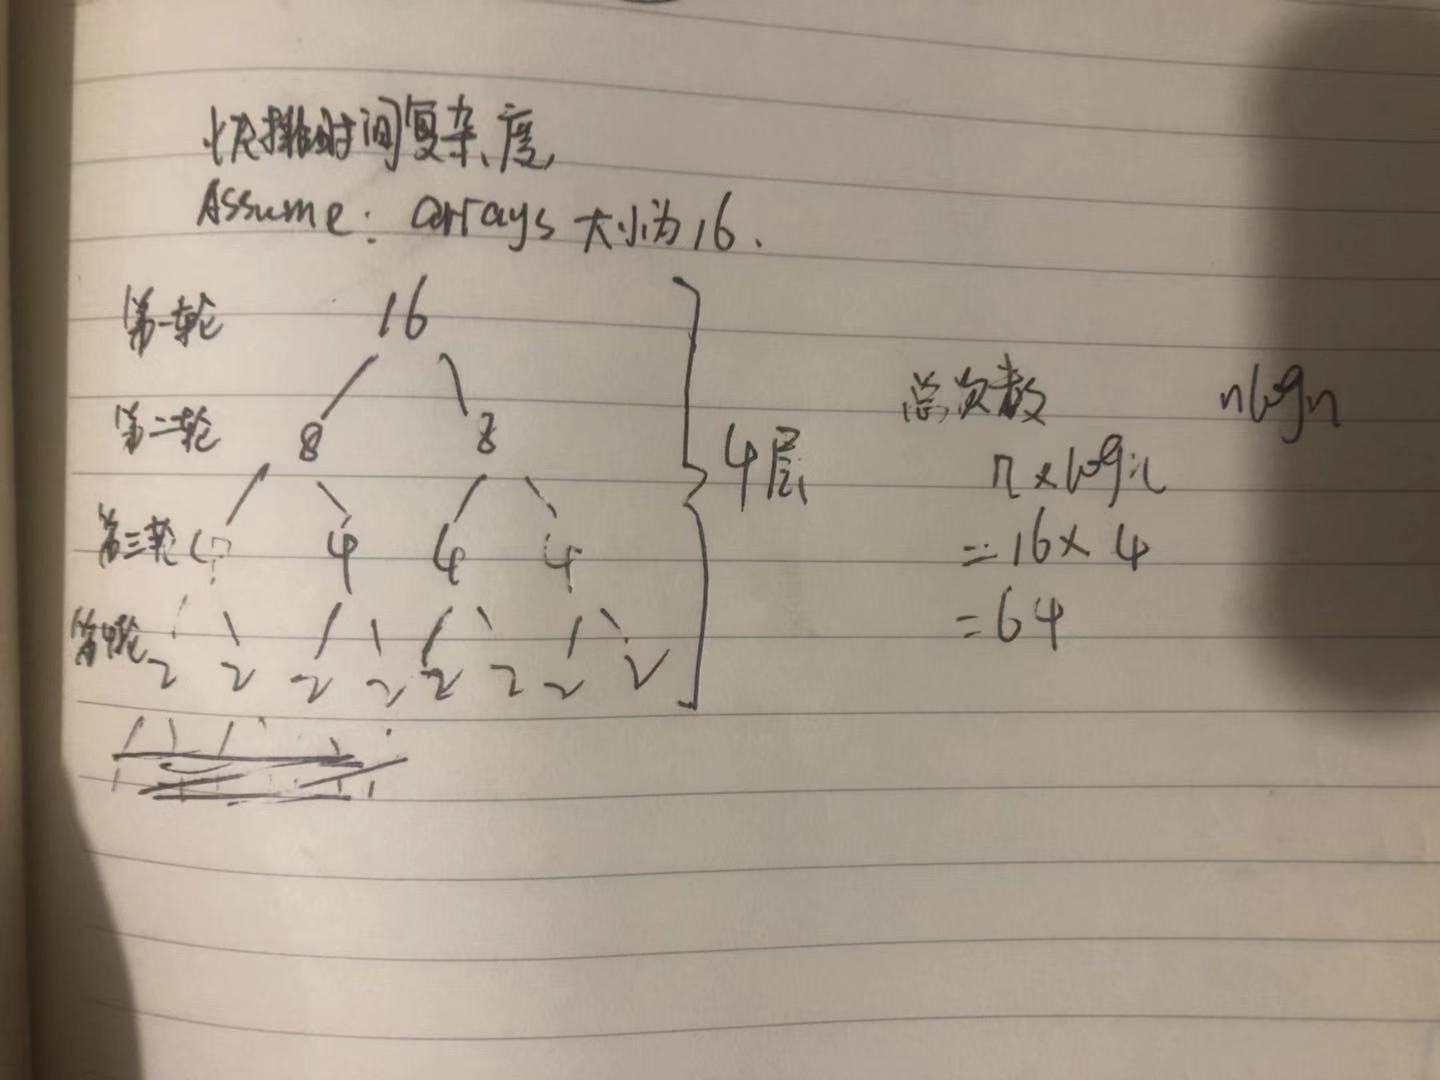 快排时间复杂度
Assume: arrays 大小为16.
第一轮 16
第二轮 8 8
第三轮 4 4 4 4
第4轮 2 2 2 2 2 2 2 2
4层
总次数 nlogn
n×logn
=16×4
=64